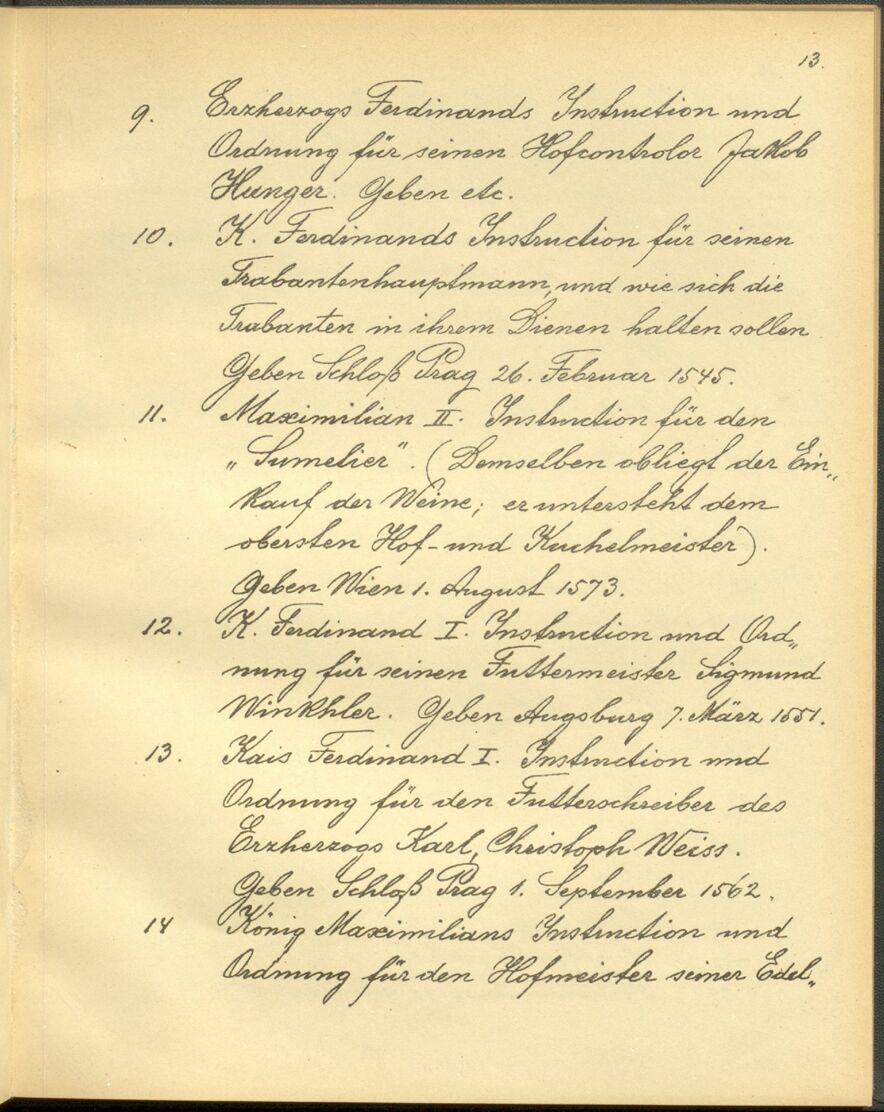 13.
9. Erzherzogs Ferdinands Instruction und
Ordnung für seinen Hofcontrolor Jakob
Hunger. Geben etc.
10. K. Ferdinands Instruction für seinen
Trabantenhauptmann, und wie sich die
Trabanten in ihrem Dienen halten sollen
Geben Schloß Prag 26. Februar 1545.
11. Maximilian II. Instruction für den
„Sumelier“. (Demselben obliegt der Ein„
kauf der Weine; er untersteht dem
obersten Hof- und Kuchelmeister).
Geben Wien 1. August 1573.
12. K. Ferdinand I. Instruction und Ord„
nung für seinen Futtermeister Sigmund
Winkhler. Geben Augsburg 7. März 1551.
13. Kais Ferdinand I. Instruction und
Ordnung für den Futterschreiber des
Erzherzogs Karl, Christoph Weiss.
Geben Schloß Prag 1. September 1562.
14 König Maximilians Instruction und
Ordnung für den Hofmeister seiner Edel„